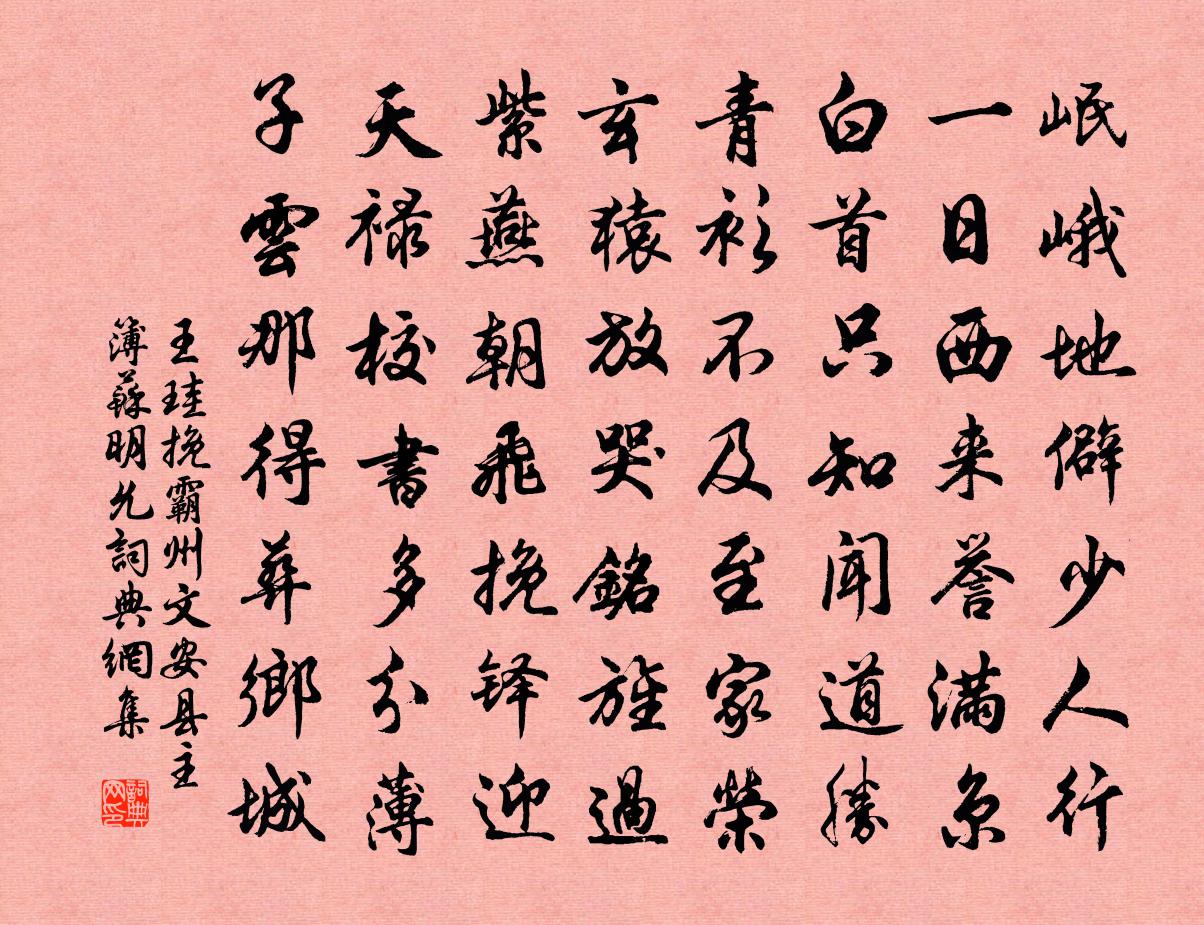 岷峨地僻少人行
一日西来誉滿京
白首只知聞道勝
青衫不及至家榮
玄猿放哭銘旌過
紫燕朝飛挽铎迎
天禄校書多分薄
子雲那得葬鄉城
王珪挽霸州文安县主
薄蘇明允詞典網集
詞典網印